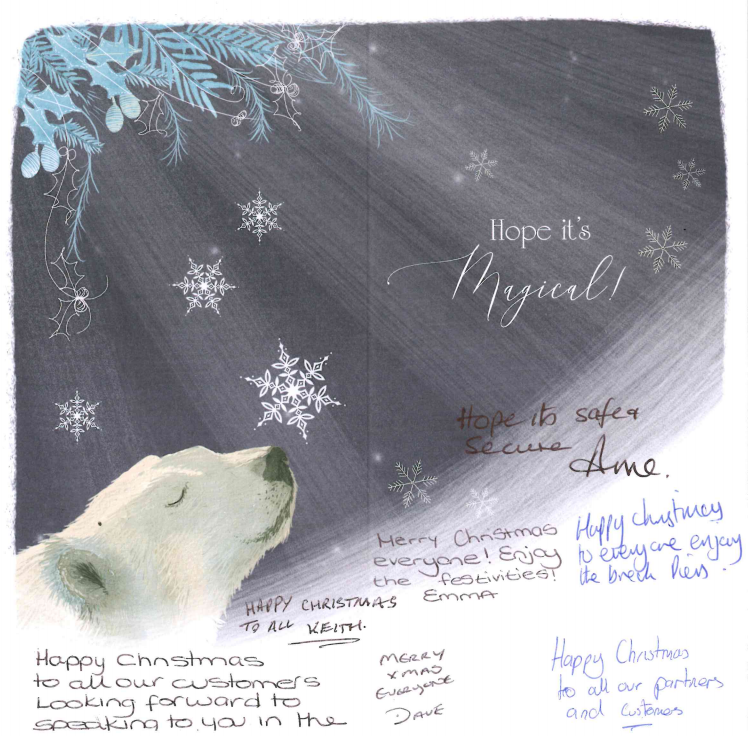 Hope it's
Magical!
Hope its safe &
Secure
Merry Christmas
everyone! Enjoy
the festivities!
Emma
Happy Christmas
to everyone enjoy
the break Piers.
HAPPY CHRISTMAS
TO ALL KEITH.
Happy Christmas
to all our customers
Looking forward to
speaking to you in the
MERRY
XMAS
EVERYONE
DAVE
Happy Christmas
to all our partners
and customers